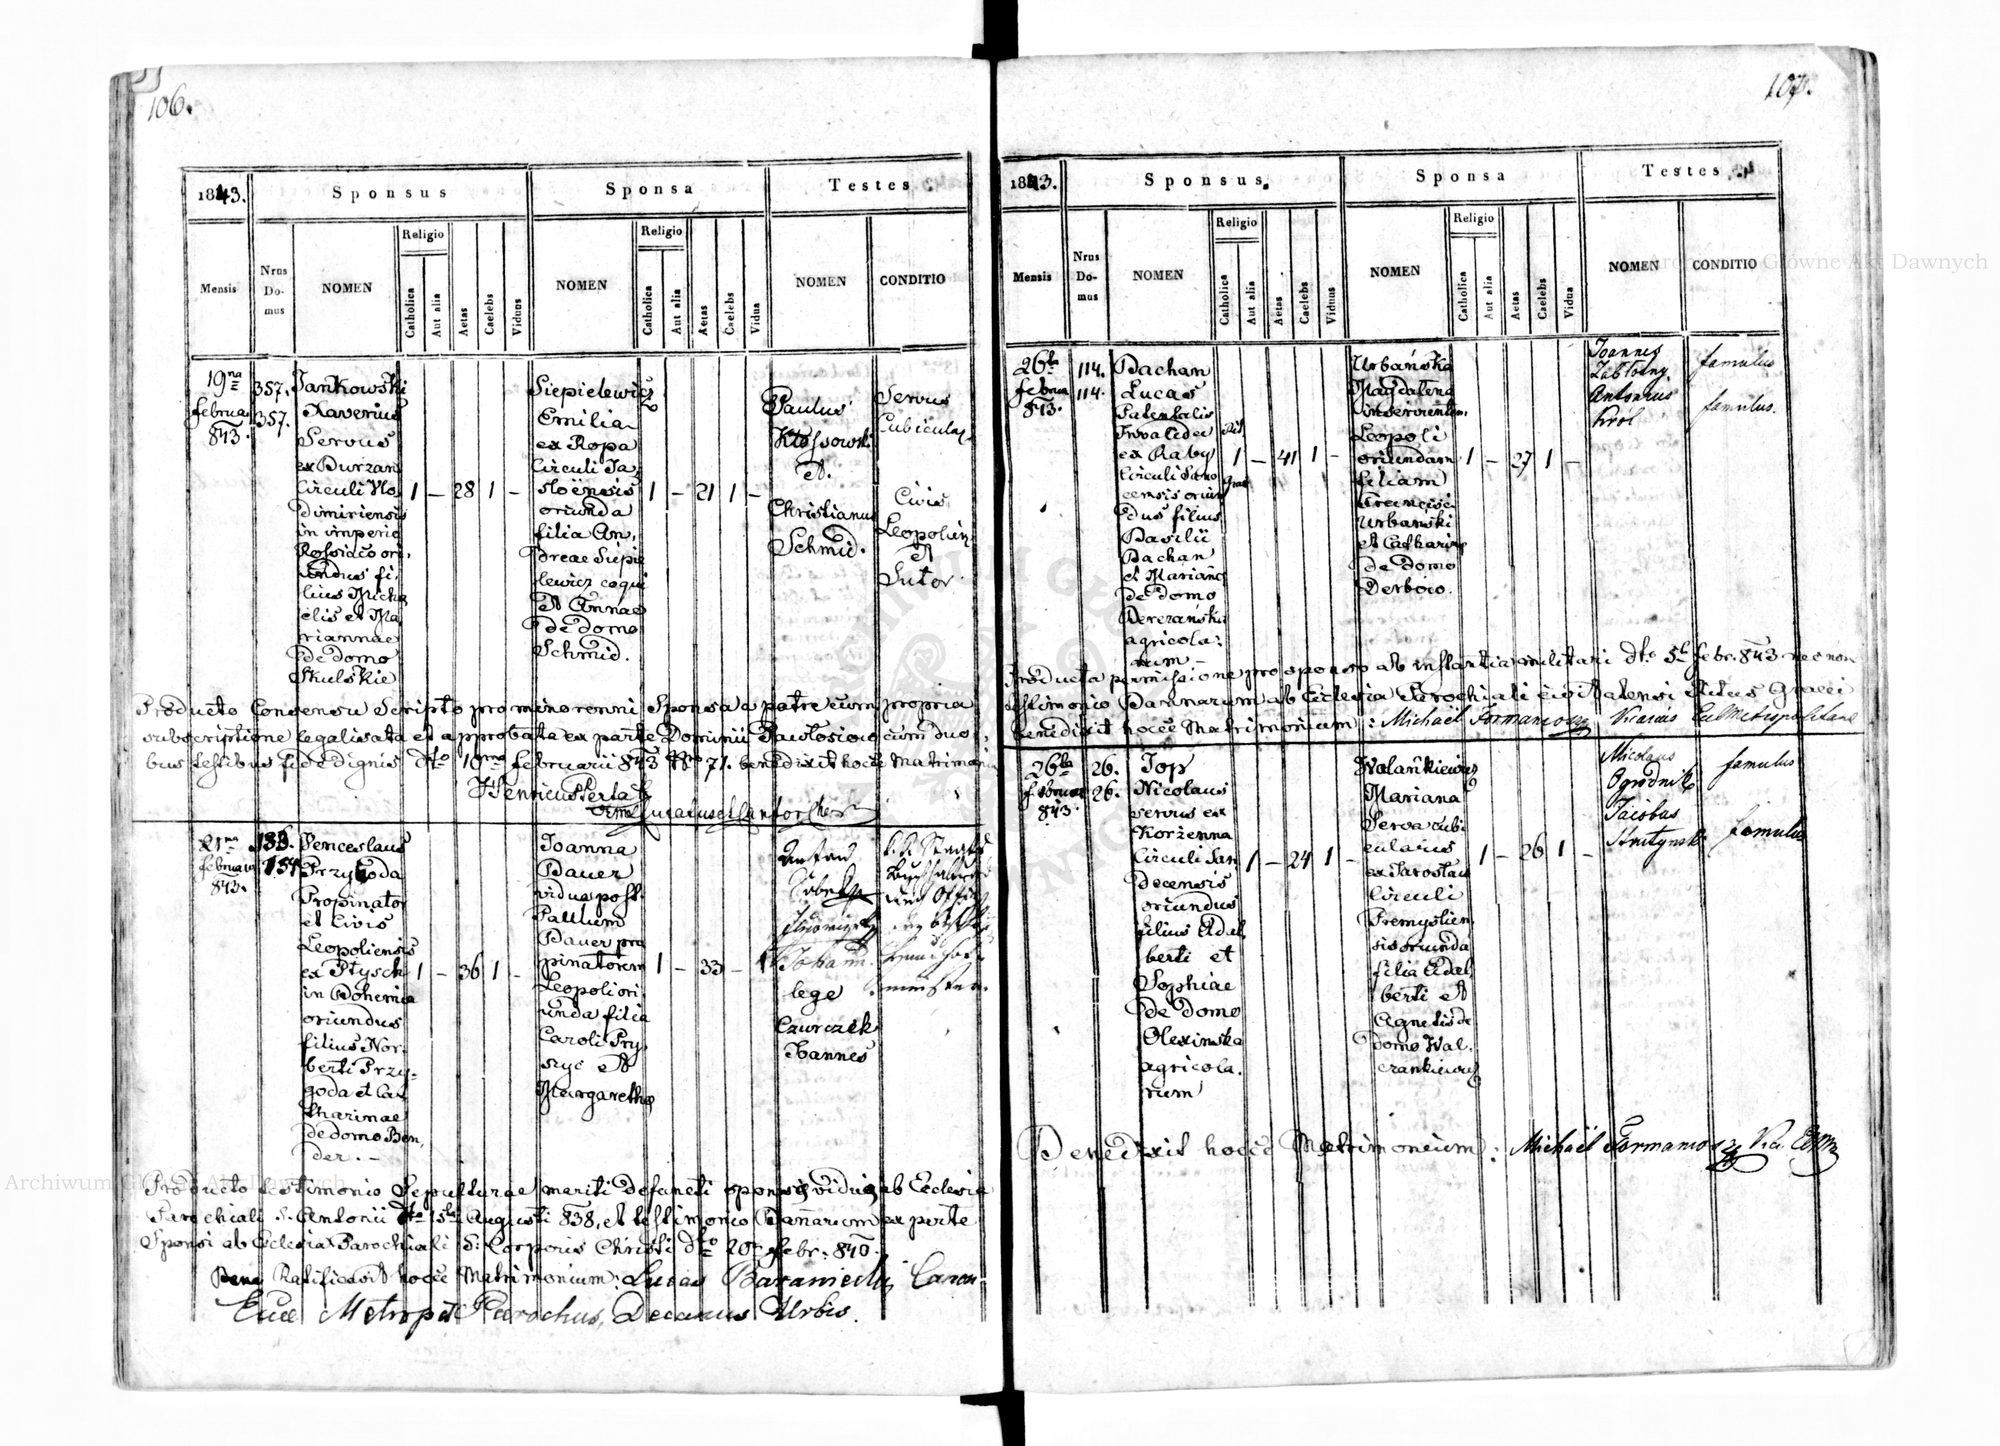 106.
1843.
Sponsus
Sponsa
Testes
Mensis
Nrus Do- mus
NOMEN
Religio
Catholica
Aut alia
Aetas
Caelebs
Viduus
NOMEN
Religio
Catholica
Aut alia
Aetas
Caelebs
Vidua
NOMEN
CONDITIO
19na
Februar
843.
357.
357.
Jankowski
Xaverius
Servus
ex Durzan
Circuli Vlo
dimiriensis
in imperio
Rossiaco ori,
undus fi,
lius Micha
elis et Ma
riannae
de domo
Skulskie
1 — 28 1 —
Siepielewicz
Emilia
ex Ropa
Circuli Ja
sloënsis
oriunda
filia An,
dreae Siepie
lewicz coqui
et Annae
de domo
Schmid.
1 — 21 1 —
Paulus
Kłossowski
et.
Christianus
Schmid.
Servus
Cubicular
Civis
Leopolien
et
Sutor
Producto Consensu Scripto pro minorenni Sponsa a patre cum propria
subscriptione legalisata et approbata ex parte Dominii Pawłosiow cum duo,
bus testibus fidedignis dto 10ma Februarii 843 Nro 71. benedixit hocce Matrimoni
Henricus
21ma
Februar
843.
133.
134
Venceslaus
Przygoda
Propinator
et Civis
Leopoliensis
ex Ptysch
in Bohemia
oriundus
filius Nor,
berti Przy-
goda et Ca
tharinae
de domo Ben,
der. —
1 — 36 1 —
Joanna
Bauer
vidua post
Paulum
Bauer pro
pinatorem
Leopoli ori
unda filia
Caroli Pry
szyc et
Margaretha
1 — 33 — 1
Johann.
lege
Czurczek
Joannes
Producto testimonio Sepulturae mariti defuncti sponsae viduae ab Ecclesia
Parochiali S. Antonii dto 15ta Augusti 838, et testimonio Bannorum ex parte
Sponsi ab Ecclesia Parochiali S: Corporis Christi dto 20 Febr. 840.
Ratificavit hocce Matrimonium: Lucas Baraniecki Canon
Eccl Metropol Parochus, Decanus Urbis.
107.
1843.
Sponsus
Sponsa
Testes
Mensis
Nrus Do- mus
NOMEN
Religio
Catholica
Aut alia
Aetas
Caelebs
Viduus
NOMEN
Religio
Catholica
Aut alia
Aetas
Caelebs
Vidua
NOMEN
CONDITIO
26ta
Februa
843.
114.
114.
Bachan
Lucas
Patentalis
Invalidus
ex Raby
Circuli Sano
censis oriun
dus filius
Basilii
Bachan
et Marianna
de domo
Derezańska
agricola,
rum —
Rit.
1
Graec
— 41 1 —
Urbańska
Magdalena
inservientem
Leopoli
oriundam
filiam
Francisci
Urbański
et Catharina
de domo
Derbow.
1 — 27 1 —
Joannes
Zabłotny.
Antonius
Król
famulus
famulus.
Producta permissione pro sponso ab instantia militari dto 5t Febr. 843 nec non
testimonio Bannorum ab Ecclesia Parochiali civitatensi Ritus Graeci
benedixit hocce Matrimonium: Michaël Formaniosz Vicarius Eccl Metropolitanae
26ta
Februar
843.
26.
26.
Top
Nicolaus
servus ex
Korzenna
Circuli San
decensis
oriundus
filius Adal
berti et
Sophiae
de domo
Olexinska
agricola.
rum
1 — 24 1 —
Walańkiewicz
Mariana
Serva cubi
cularis
ex Jaroslau
Circuli
Premyslien
sis oriunda
filia Adal
berti et
Agnetis de
domo Wal.
czankiewicz
1 — 26 1 —
Nicolaus
Ogrodnik
Jacobus
Krutynski
famulus
famulus
Benedixit hocce Matrimonium: Michaël Formaniosz Vic.
Archiwum Główne Akt Dawnych
Archiwum Główne Akt Dawnych